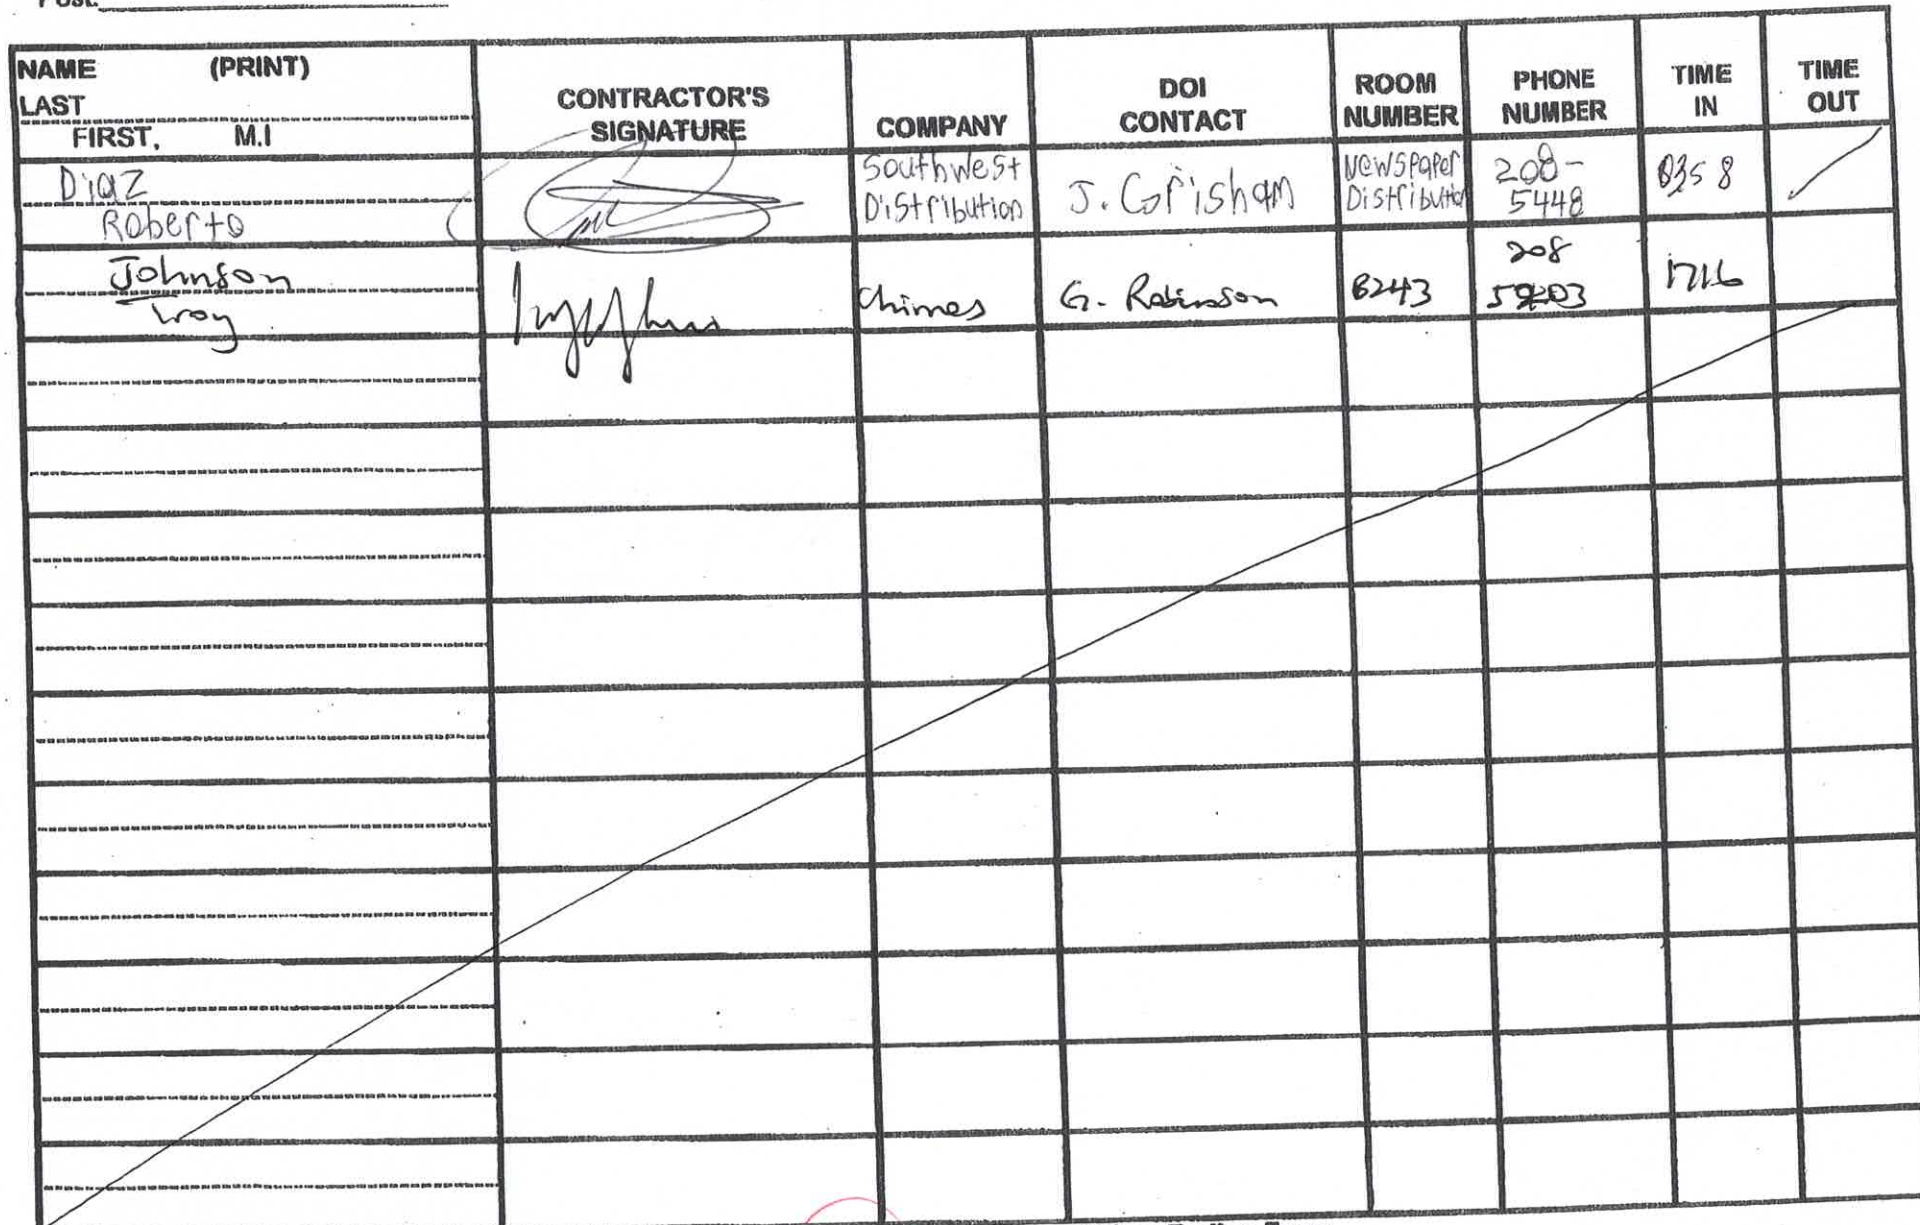 Post:
NAME (PRINT)
LAST
FIRST, M.I
CONTRACTOR'S
SIGNATURE
COMPANY
DOI
CONTACT
ROOM
NUMBER
PHONE
NUMBER
TIME
IN
TIME
OUT
Diaz
Roberto
Southwest
Distribution
J. Grisham
Newspaper
Distribution
208-
5448
0358
Johnson
Troy
Chimes
G. Robinson
B243
208
1716